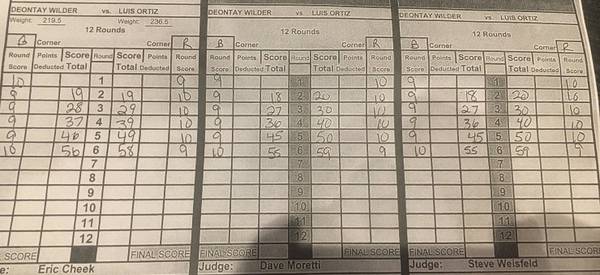 DEONTAY WILDER vs. LUIS ORTIZ
Weight: 219.5 Weight: 236.5
12 Rounds
B Corner Corner R
Round Score Points Deducted Score Total Round Score Total Points Deducted Round Score
10 1 9
9 19 2 19 10
9 28 3 29 10
9 37 4 39 10
9 46 5 49 10
10 56 6 58 9
7
8
9
10
11
12
SCORE FINAL SCORE
e: Eric Cheek
DEONTAY WILDER vs. LUIS ORTIZ
12 Rounds
B Corner Corner R
Round Score Points Deducted Score Total Round Score Total Points Deducted Round Score
9 1 10
9 18 2 20 10
9 27 3 30 10
9 36 4 40 10
9 45 5 50 10
10 55 6 59 9
7
8
9
10
11
12
FINAL SCORE FINAL SCORE
Judge: Dave Moretti
DEONTAY WILDER vs. LUIS ORTIZ
12 Rounds
B Corner Corner R
Round Score Points Deducted Score Total Round Score Total Points Deducted Round Score
9 1 10
9 18 2 20 10
9 27 3 30 10
9 36 4 40 10
9 45 5 50 10
10 55 6 59 9
7
8
9
10
11
12
FINAL SCORE FINAL SCORE
Judge: Steve Weisfeld